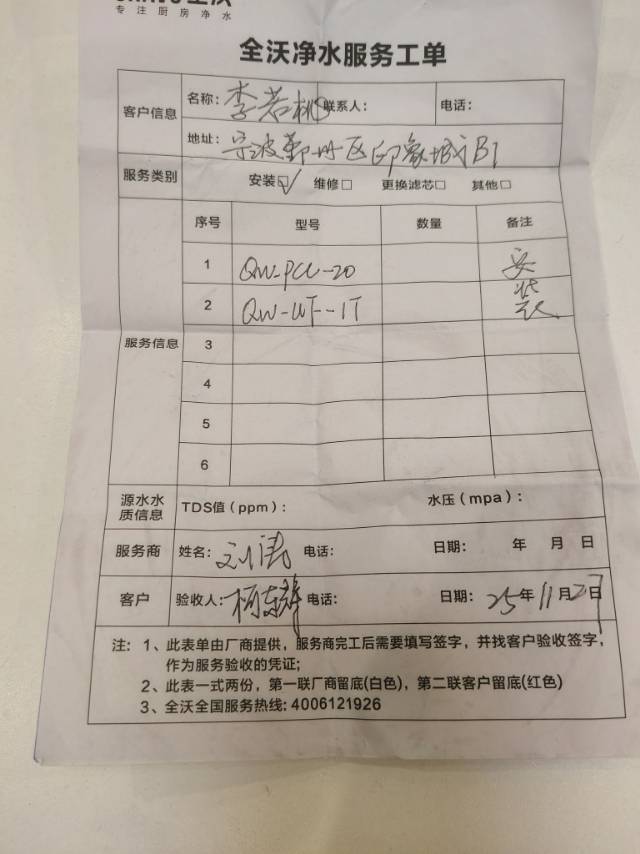 专注厨房净水
全沃净水服务工单
客户信息
名称：李若桃 联系人： 电话：
地址：宁波鄞州区印象城B1
服务类别 安装☑ 维修□ 更换滤芯□ 其他□
服务信息
序号 型号 数量 备注
1 QW-PCU-20 安
2 QW-UF-1T 装
3
4
5
6
源水水质信息 TDS值（ppm）： 水压（mpa）：
服务商 姓名：刘涛 电话： 日期： 年 月 日
客户 验收人： 电话： 日期：25年11月27日
注：1、此表单由厂商提供，服务商完工后需要填写签字，并找客户验收签字，
作为服务验收的凭证；
2、此表一式两份，第一联厂商留底(白色)，第二联客户留底(红色)
3、全沃全国服务热线：4006121926